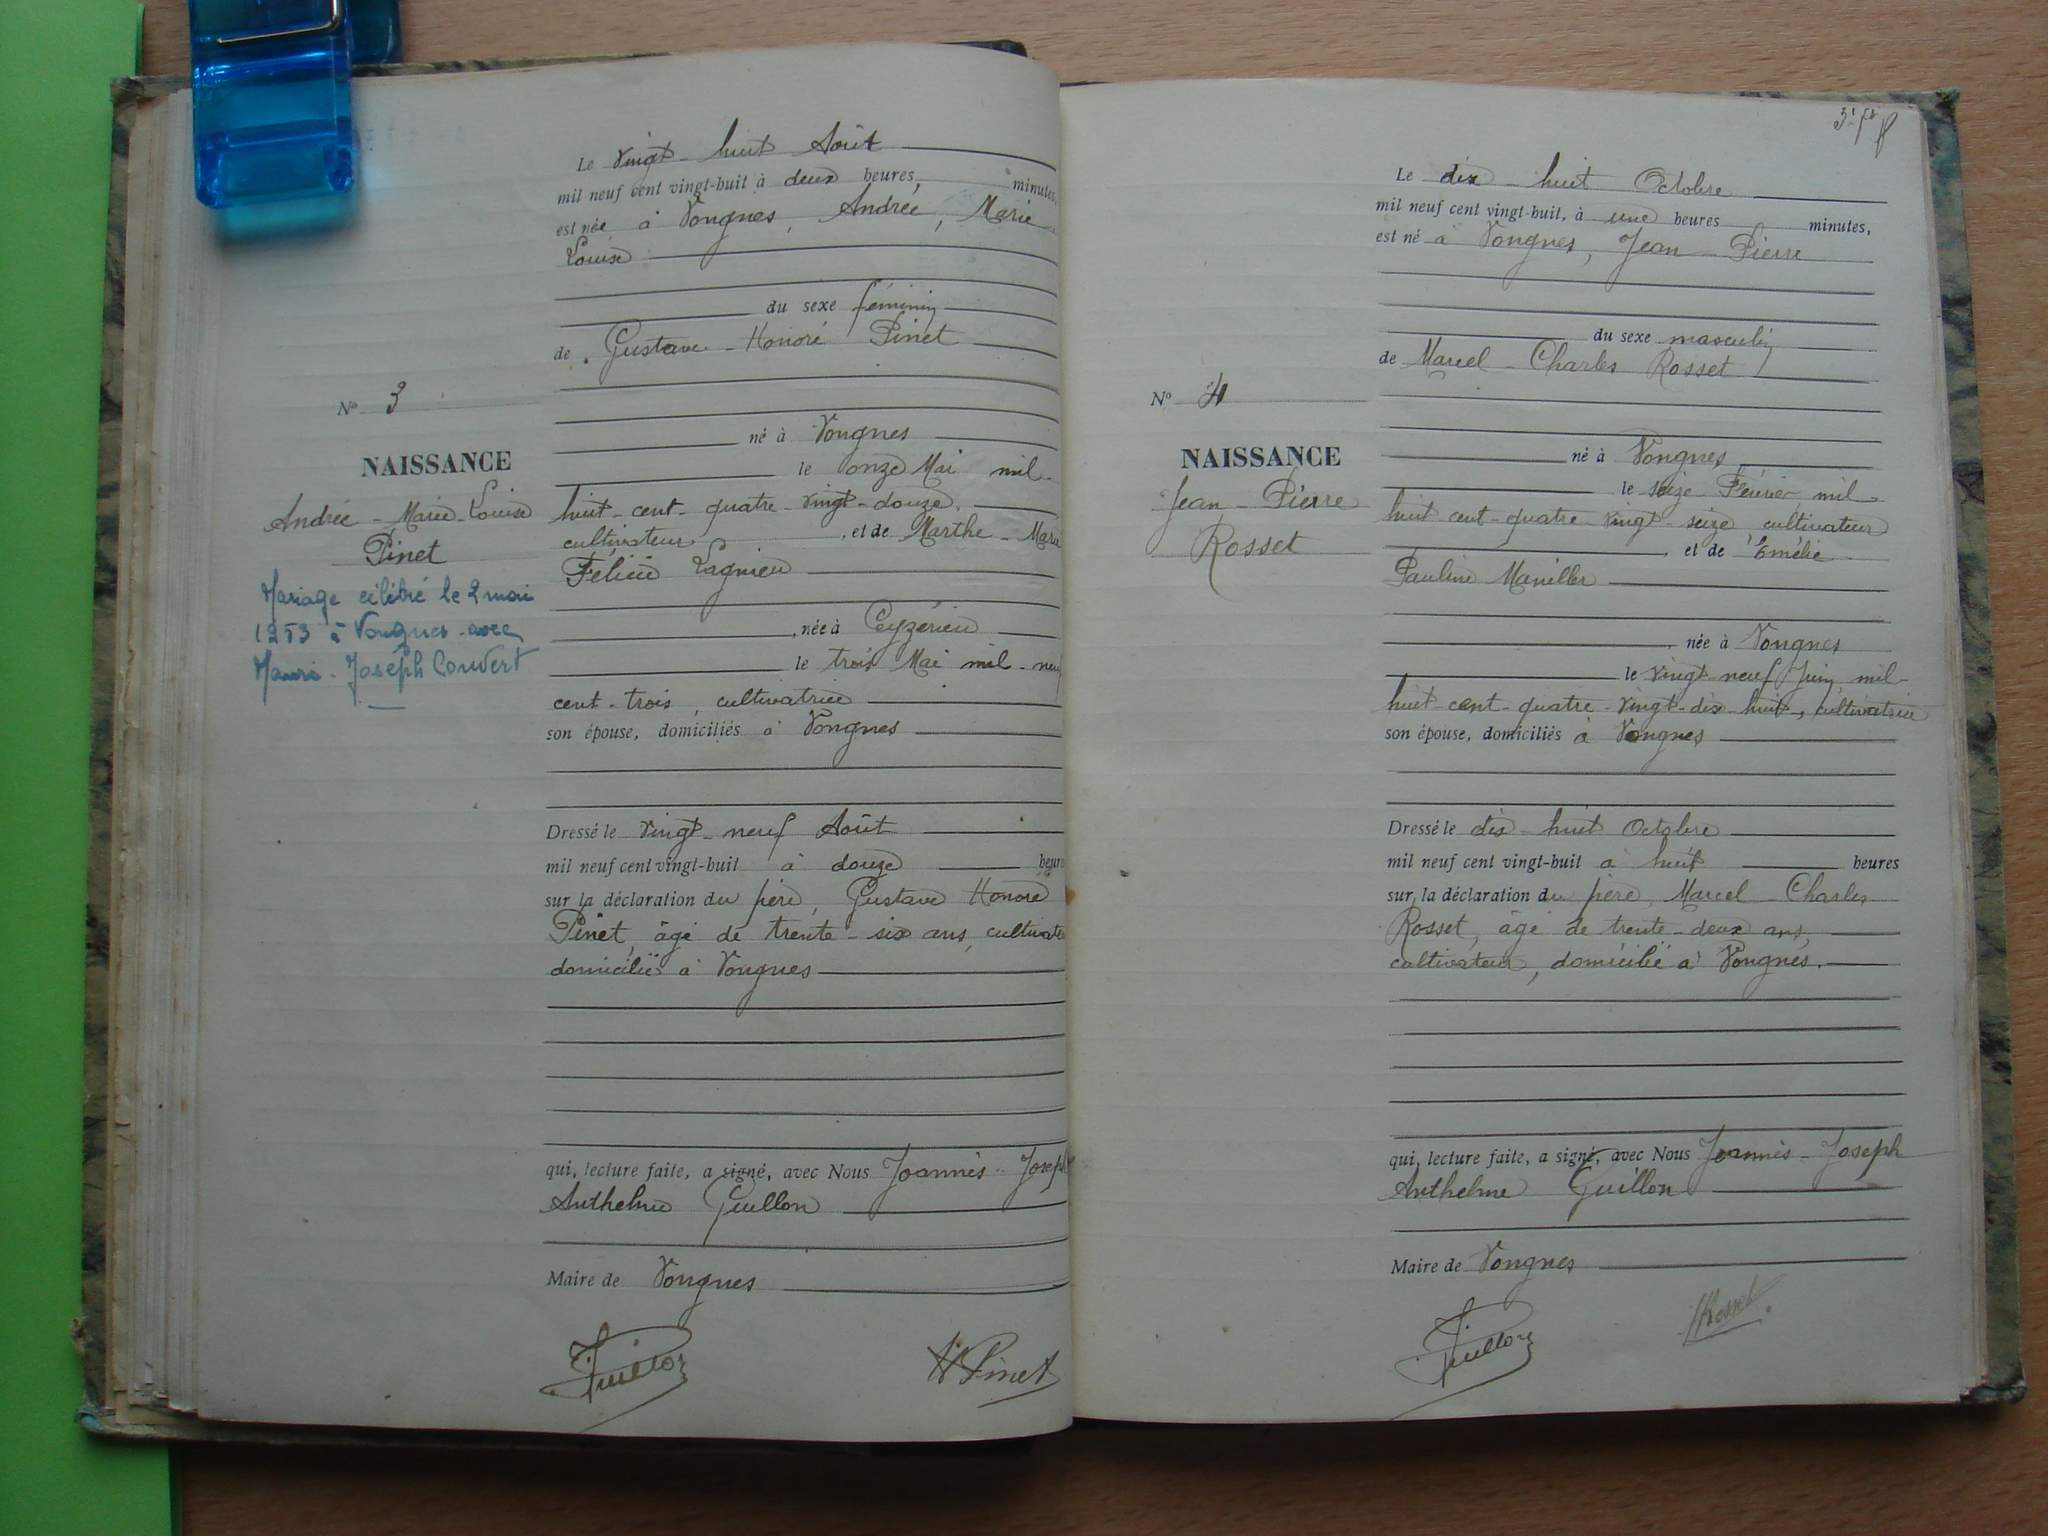 Le vingt-huit Août
mil neuf cent vingt-huit à deux heures, minutes,
est née à Vongnes, Andrée, Marie
Louise
du sexe féminin
de Gustave-Honoré Pinet
né à Vongnes
le onze Mai mil-
huit-cent-quatre-vingt-douze.
cultivateur, et de Marthe-Marie
Félicie Lagnieu
, née à Ceyzérieu
le trois Mai mil-neuf
cent-trois, cultivatrice
son épouse, domiciliés à Vongnes
Dressé le vingt-neuf Août
mil neuf cent vingt-huit à douze heures
sur la déclaration du père, Gustave Honoré
Pinet, âgé de trente-six ans, cultivateur
domicilié à Vongnes
qui, lecture faite, a signé, avec Nous Joannès-Joseph
Anthelme Guillon
Maire de Vongnes
Guillon
H Pinet
No 3
NAISSANCE
Andrée-Marie-Louise
Pinet
Mariage célébré le 2 mai
1953 à Vongnes avec
Joseph Convert
Le dix-huit Octobre
mil neuf cent vingt-huit, à une heures minutes,
est né à Vongnes, Jean-Pierre
du sexe masculin
de Marcel-Charles Rosset
né à Vongnes
le seize Février mil-
huit-cent-quatre-vingt-seize cultivateur
, et de Emélie
Pauline Maniller
, née à Vongnes
le vingt neuf Juin mil-
huit-cent-quatre-vingt-dix-huit, cultivatrice
son épouse, domiciliés à Vongnes
Dressé le dix-huit Octobre
mil neuf cent vingt-huit à huit heures
sur la déclaration du père, Marcel-Charles
Rosset, âgé de trente-deux ans,
cultivateur, domicilié à Vongnes.
qui, lecture faite, a signé, avec Nous Joannès-Joseph
Anthelme Guillon
Maire de Vongnes
Guillon
Rosset
No 4
NAISSANCE
Jean-Pierre
Rosset